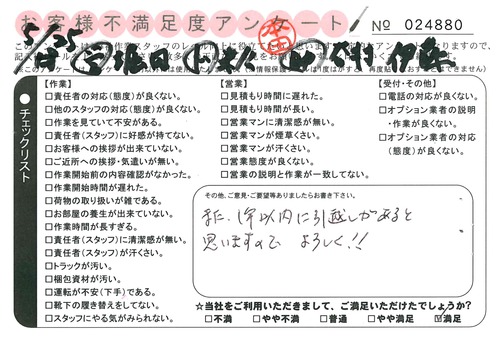 お客様不満足度アンケート
№ 024880
5/25
チェックリスト
【作業】
□責任者の対応(態度)が良くない。
□他のスタッフの対応(態度)が良くない。
□作業を見ていて不安がある。
□責任者(スタッフ)に好感が持てない。
□お客様への挨拶が出来ていない。
□ご近所への挨拶・気遣いが無い。
□作業開始前の内容確認がなかった。
□作業開始時間が遅れた。
□荷物の取り扱いが雑である。
□お部屋の養生が出来ていない。
□作業時間が長すぎる。
□責任者(スタッフ)に清潔感が無い。
□責任者(スタッフ)が汗くさい。
□トラックが汚い。
□梱包資材が汚い。
□運転が不安(下手)である。
□靴下の履き替えをしてない。
□スタッフにやる気がみられない。
【営業】
□見積もり時間に遅れた。
□見積もり時間が長い。
□営業マンに清潔感が無い。
□営業マンが煙草くさい。
□営業マンが汗くさい。
□営業態度が良くない。
□営業の説明と作業が一致してない。
【受付・その他】
□電話の対応が良くない。
□オプション業者の説明
・作業が良くない。
□オプション業者の対応
(態度)が良くない。
その他、ご意見・ご要望等ありましたらお書き下さい。
また、1年以内に引越しがあると
思いますので よろしく!!
☆当社をご利用いただきまして、ご満足いただけたでしょうか?
□不満 □やや不満 □普通 □やや満足 ☑満足